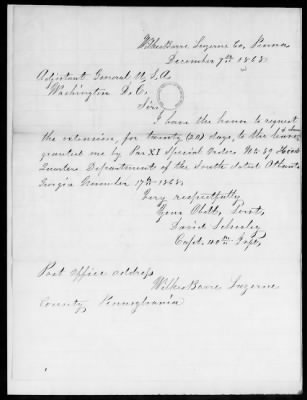 Wilkes Barre Luzerne Co, Penna
December 7th 1868.
Adjutant General U.S.A.
Washington D.C.
Sir,
I have the honor to request
the extension, for twenty (20) days, to the leave
granted me by Par XI Special Orders No 89 Head
Quarters Department of the South dated Atlanta
Georgia November 17th 1868.
Very respectfully
Your Obdt. Servt.
David Schooley
Capt. Inft.
Post Office address
Wilkes Barre Luzerne
County, Pennsylvania